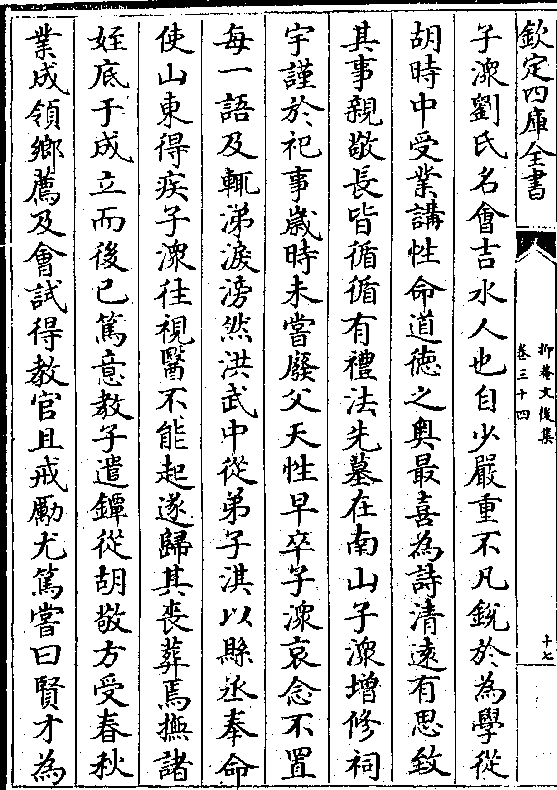 欽定四庫全書
抑菴文後集
卷三十四
十七
子㴸劉氏名會吉水人也自少嚴重不凡銳於為學從
胡時中受業講性命道德之奥最喜為詩清遠有思致
其事親敬長皆循循有禮法先墓在南山子㴸增修祠
宇謹於祀事嵗時未嘗廢父天性早卒子㴸哀念不置
每一語及輒涕淚滂然洪武中從弟子淇以縣丞奉命
使山東得疾子㴸往視醫不能起遂歸其喪葬焉撫諸
姪底于成立而後已篤意教子遣鐔從胡敬方受春秋
業成領鄉薦及會試得教官且戒勵尤篤嘗曰賢才為